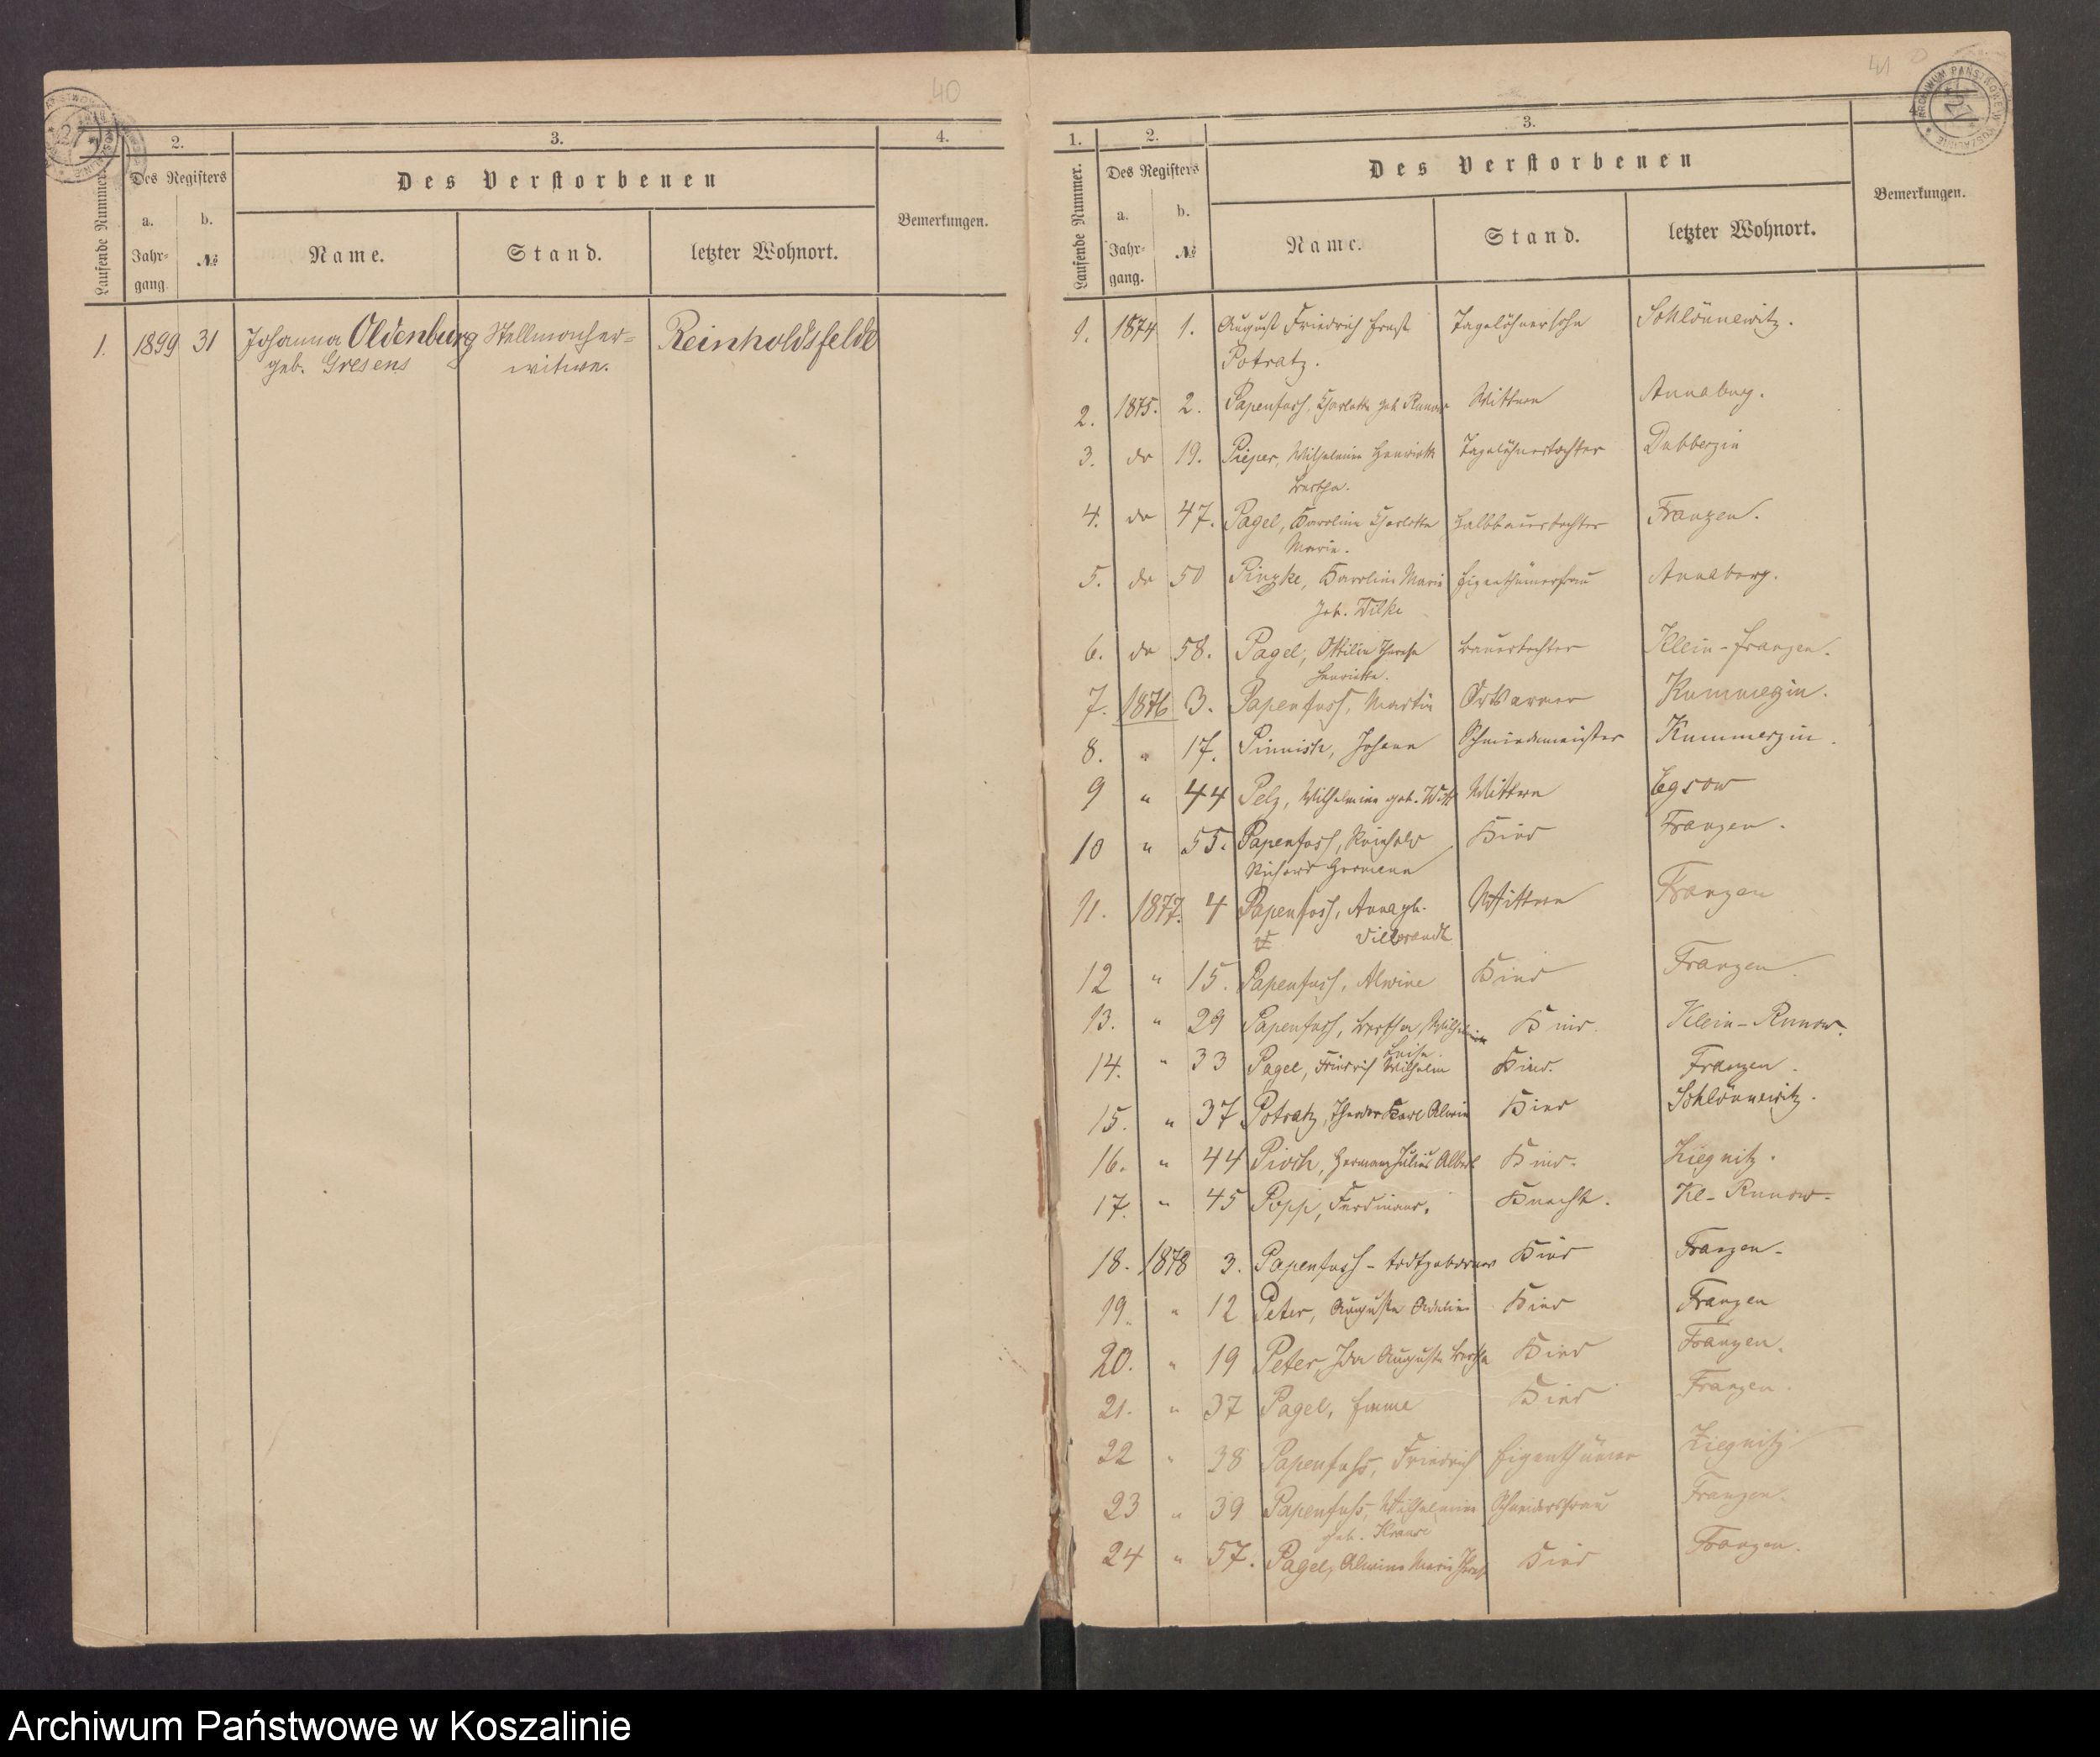 40
1.
2.
3.
4.
Laufende Nummer.
Des Registers
Des Verstorbenen
Bemerkungen.
a.
b.
Jahr-
gang.
№
Name.
Stand.
letzter Wohnort.
1. 1899 31 Johanna Oldenburg Stellmacher= Reinholdsfelde
geb. Gresens witwe.
41
ARCHIWUM PAŃSTWOWE W KOSZALINIE
1.
2.
3.
Laufende Nummer.
Des Registers
Des Verstorbenen
Bemerkungen.
a.
b.
Jahr-
gang.
№
Name.
Stand.
letzter Wohnort.
1. 1874 1. August Friedrich Ernst Tagelöhnersohn Schlönnewitz.
Potratz.
2. 1875. 2. Papenfuss, Charlotte geb. Runow Wittwe Annaberg.
3. do 19. Pieper, Wilhelmine Henriette Tagelöhnertochter Dubberzin
Bertha.
4. do 47. Pagel, Karoline Charlotte Halbbauertochter Franzen.
Marie.
5. do 50 Pinzke, Karoline Marie Eigenthümerfrau Annaberg.
geb. Wilke
6. do 58. Pagel, Ottilie Therese Bauertochter Klein-Franzen.
Henriette.
7. 1876 3. Papenfuss, Martin Ortsarmer Kummerzin.
8. " 17. Pinnisch, Johann Schmiedemeister Kummerzin.
9 " 44 Pelz, Wilhelmine geb. Witt Wittwe Egsow
10 " 55. Papenfuss, Reinhold Kind Franzen.
Richard Hermann
11. 1877. 4 Papenfuss, Anna geb. Wittwe Franzen
Villbrandt
12 " 15. Papenfuss, Alwine Kind Franzen.
13. " 29 Papenfuss, Bertha Wilhelmine Kind. Klein-Runow.
Luise.
14. " 33 Pagel, Friedrich Wilhelm Kind. Franzen.
15. " 37 Potratz, Theodor Karl Alwin Kind Schlönnewitz.
16. " 44 Pioch, Hermann Julius Albert Kind. Ziegnitz.
17. " 45 Popp, Ferdinand. Knecht. Kl- Runow.
18. 1878 3. Papenfuss - todtgeborenes Kind Franzen.
19. " 12 Peter, Auguste Kind Franzen
20. " 19 Peter, Ida Auguste Bertha Kind Franzen.
21. " 37 Pagel, Emma Kind Franzen.
22 " 38 Papenfuhs, Friedrich Eigenthümer Ziegnitz
23 " 39 Papenfuhs, Wilhelmine Schneiderfrau Franzen.
geb. Krause
24 " 57. Pagel, Alwine Marie Kind Franzen.
Archiwum Państwowe w Koszalinie